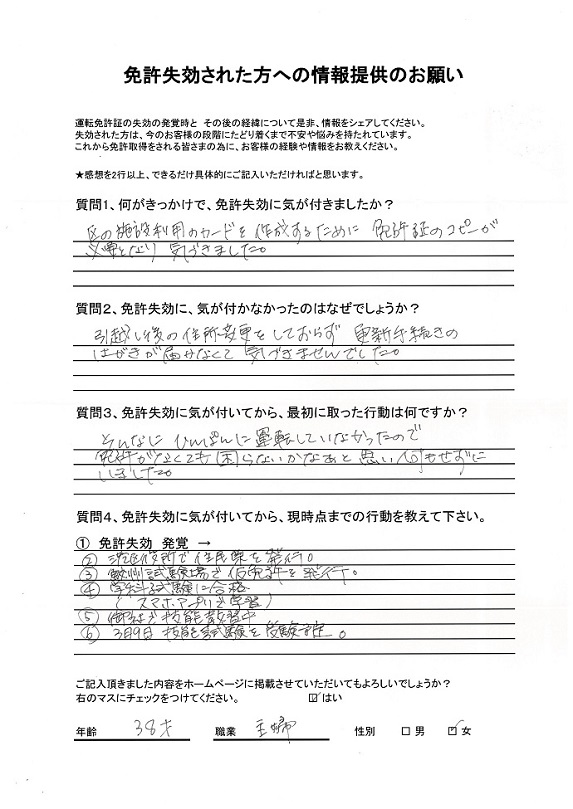 免許失効された方への情報提供のお願い
運転免許証の失効の発覚時と その後の経緯について是非、情報をシェアしてください。
失効された方は、今のお客様の段階にたどり着くまで不安や悩みを持たれています。
これから免許取得をされる皆さまの為に、お客様の経験や情報をお教えください。
★感想を2行以上、できるだけ具体的にご記入いただければと思います。
質問1、何がきっかけで、免許失効に気が付きましたか？
区の施設利用のカードを作成するために 免許証のコピーが
必要となり 気づきました。
質問2、免許失効に、気が付かなかったのはなぜでしょうか？
引越し後の住所変更をしておらず 更新手続きの
はがきが届かなくて 気づきませんでした。
質問3、免許失効に気が付いてから、最初に取った行動は何ですか？
そんなに ひんぱんに運転していなかったので
免許がなくても困らないかなあと思い何もせずに
いました。
質問4、免許失効に気が付いてから、現時点までの行動を教えて下さい。
① 免許失効 発覚 →
② 港区役所で住民票を発行。
③ 鮫洲試験場で仮免許を発行。
④ 学科試験に合格
(スマホアプリで学習)
⑤ 御社で技能教習中
⑥ 3月9日 技能試験を受験予定。
ご記入頂きました内容をホームページに掲載させていただいてもよろしいでしょうか？
右のマスにチェックをつけてください。 ☑はい
年齢 38才 職業 主婦 性別 □男 ☑女